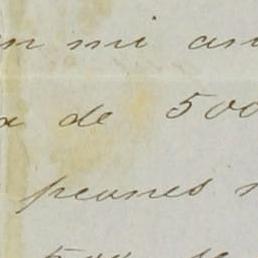 en mi an
a de 500
peones